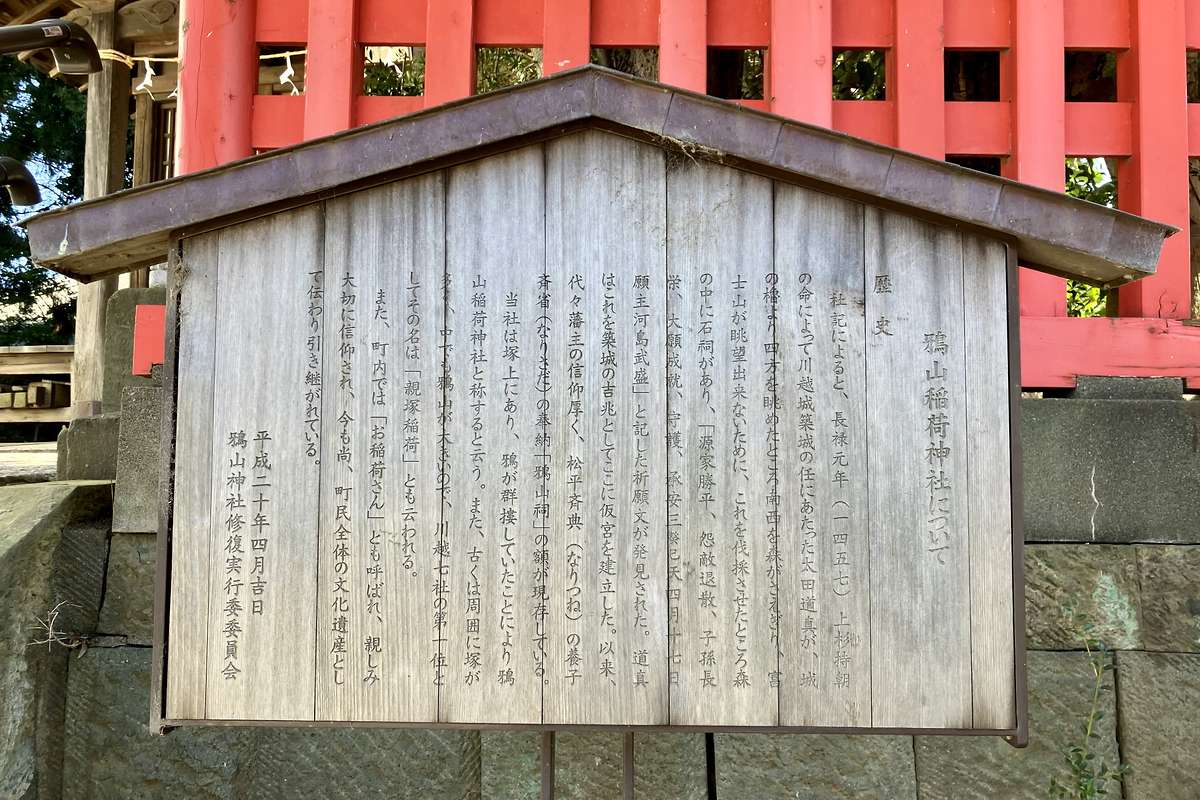 鴉山稲荷神社について
歴史
社記によると、長禄元年（一四五七）上杉持朝
の命によって川越城築城の任にあたった太田道真が、城
の櫓より四方を眺めたところ南西を森がさえぎり、富
士山が眺望出来ないために、これを伐採させたところ森
の中に石祠があり、「源家勝平、怨敵退散、子孫長
栄、大願成就、守護、承安三癸巳天四月十七日
願主河島武盛」と記した祈願文が発見された。道真
はこれを築城の吉兆としてここに仮宮を建立した。以来、
代々藩主の信仰厚く、松平斉典（なりつね）の養子
斉省（なりさだ）の奉納「鴉山祠」の額が現存している。
当社は塚上にあり、鴉が群棲していたことにより鴉
山稲荷神社と称すると云う。また、古くは周囲に塚が
多く、中でも鴉山が大きいので、川越七社の第一位と
してその名は「親塚稲荷」とも云われる。
また、町内では「お稲荷さん」とも呼ばれ、親しみ
大切に信仰され、今も尚、町民全体の文化遺産とし
て伝わり引き継がれている。
平成二十年四月吉日
鴉山神社修復実行委委員会